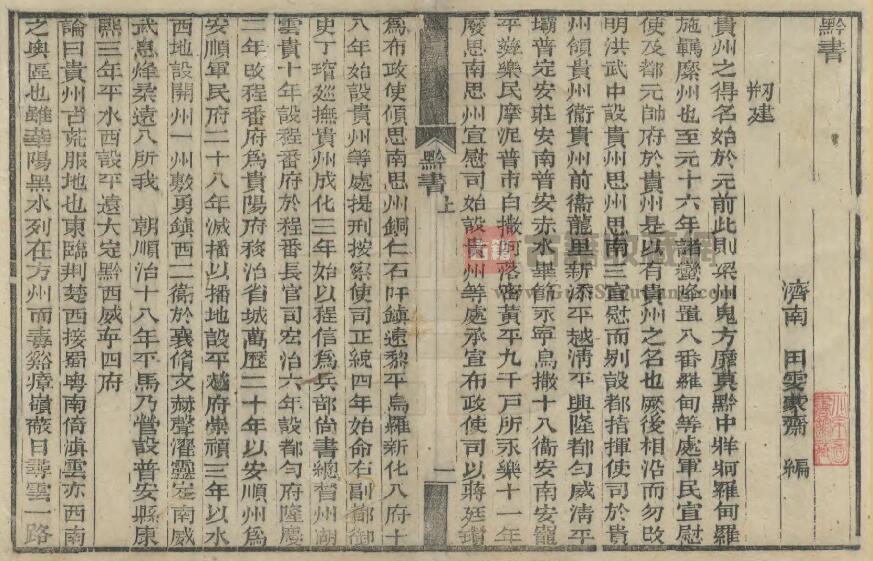 黔書
濟南 田雯蒙齋 編
剏建
貴州之得名始於元前此則梁州鬼方靡莫黔中牂牁羅甸羅
施羈縻州也至元十六年諸蠻降置八番羅甸等處軍民宣慰
使及都元帥府於貴州是以有貴州之名也厥後相沿而勿改
明洪武中設貴州思州思南三宣慰而別設都指揮使司於貴
州領貴州衞貴州前衞龍里新添平越清平興隆都勻威清平
壩普定安莊安南普安赤水畢節永寧烏撒十八衞安南安龍
平夷樂民摩泥普市白撒阿落密黃平九千戶所永樂十一年
廢思南思州宣慰司始設貴州等處承宣布政使司以蔣廷瓚
黔書 上 一
爲布政使領思南思州銅仁石阡鎮遠黎平烏羅新化八府十
八年始設貴州等處提刑按察使司正統四年始命右副都御
史丁璿廵撫貴州成化三年始以程信爲兵部尚書總督川湖
雲貴十年設程番府於程番長官司宏治六年設都勻府隆慶
二年改程番府爲貴陽府移治省城萬歷三十年以安順州爲
安順軍民府二十八年滅播以播地設平越府崇禎三年以水
西地設開州一州敷勇鎮西二衞於襄脩文赫聲濯靈定南威
武息烽柔遠八所我 朝順治十八年平馬乃營設普安縣康
熙三年平水西設平遠大定黔西威寧四府
論曰貴州古荒服地也東臨荆楚西接蜀粵南倚滇雲亦西南
之奧區也雖華陽黑水列在方州而毒谿瘴嶺蔽日尋雲一路
古籍